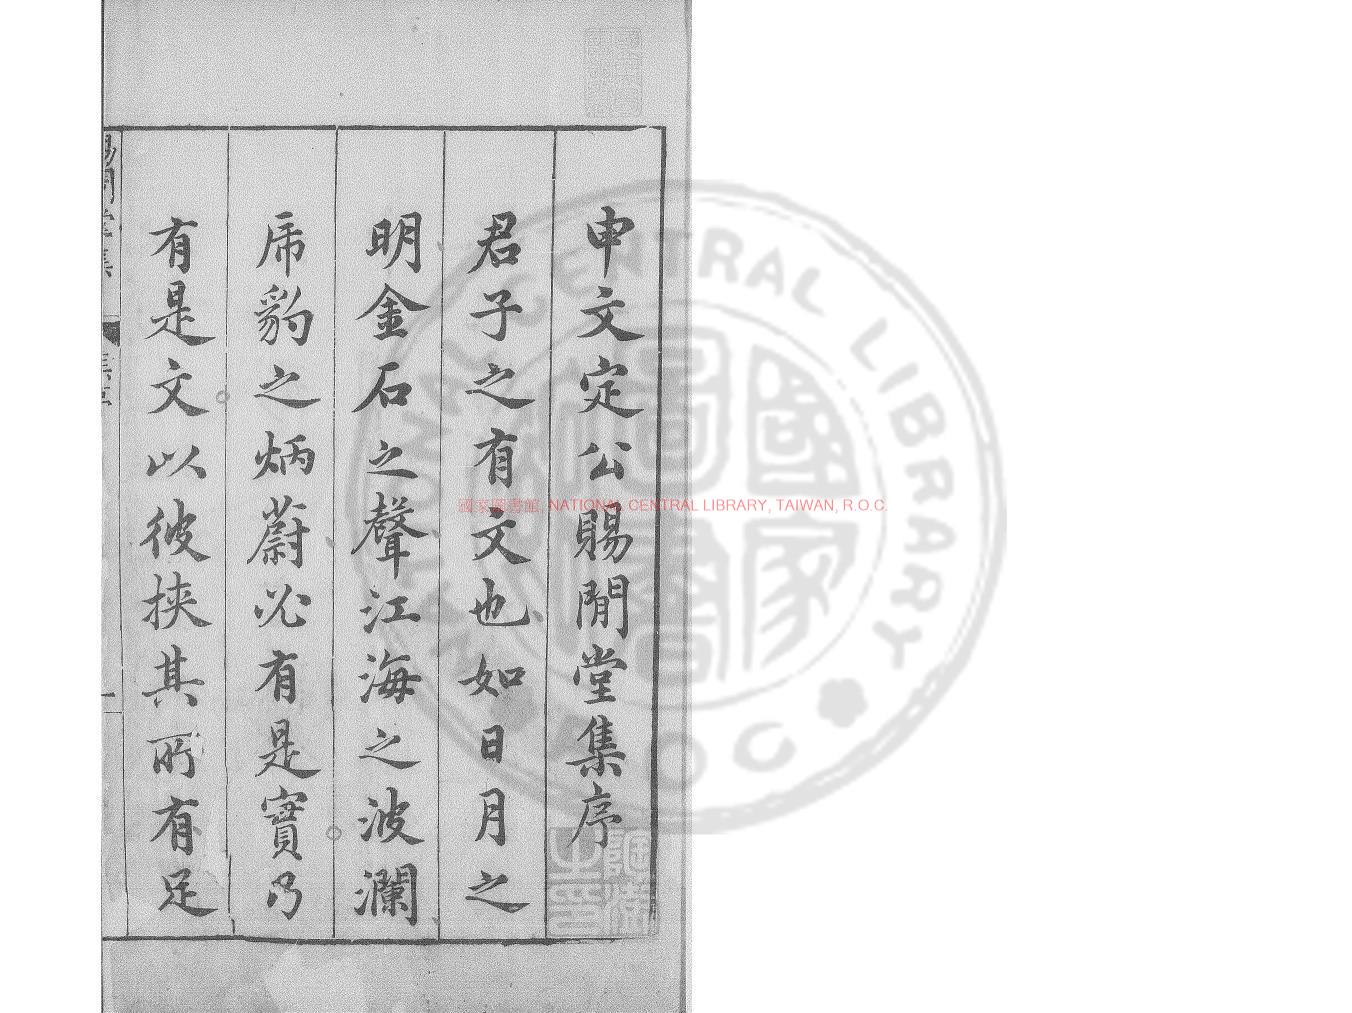 申文定公賜閒堂集序
君子之有文也如日月之
明金石之聲江海之波瀾
虎豹之炳蔚必有是實乃
有是文以彼挾其所有足
國家圖書館, NATIONAL CENTRAL LIBRARY, TAIWAN, R.O.C.
NATIONAL CENTRAL LIBRARY
TAIWAN ROC
國家圖書館